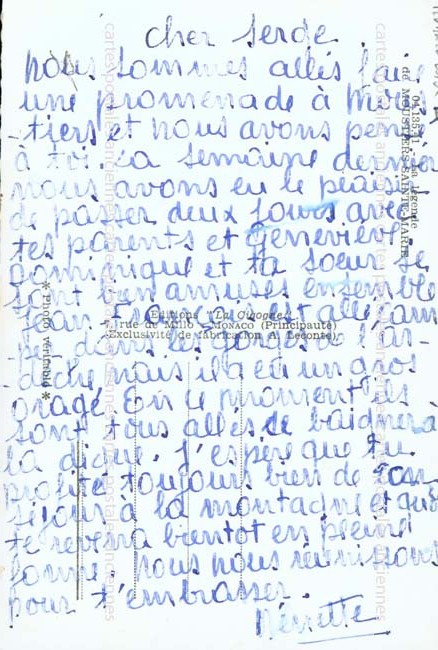 cher serge
nous sommes allés faire
une promenade à Mous
-tiers et nous avons pensé
à toi. La semaine dernière
nous avons eu le plaisir
de passer deux jours avec
tes parents et Geneviève.
Dominique et ta soeur se
sont bien amusés ensemble
Jean est allé cam
-per dans les gorges de l'ar
-dèche, mais il a eu un gros
orage. En ce moment ils
sont tous allés se baigner à
la digue. J'espère que tu
profite toujours bien de ton
séjour à la montagne et qu'on
te reverra bientot en pleine
forme. nous nous réunissons
pour t'embrasser.
04.135.11 - La légende
de MOUSTIERS-SAINTE-MARIE
* Photo véritable *
Editions "La Cigogne"
7, rue de Millo - MONACO (Principauté)
(Exclusivité de fabrication A. Leconte)
cartes-postales-anciennes
cartes-postales-anciennes
cartes-postales-anciennes
cartes-postales-anciennes